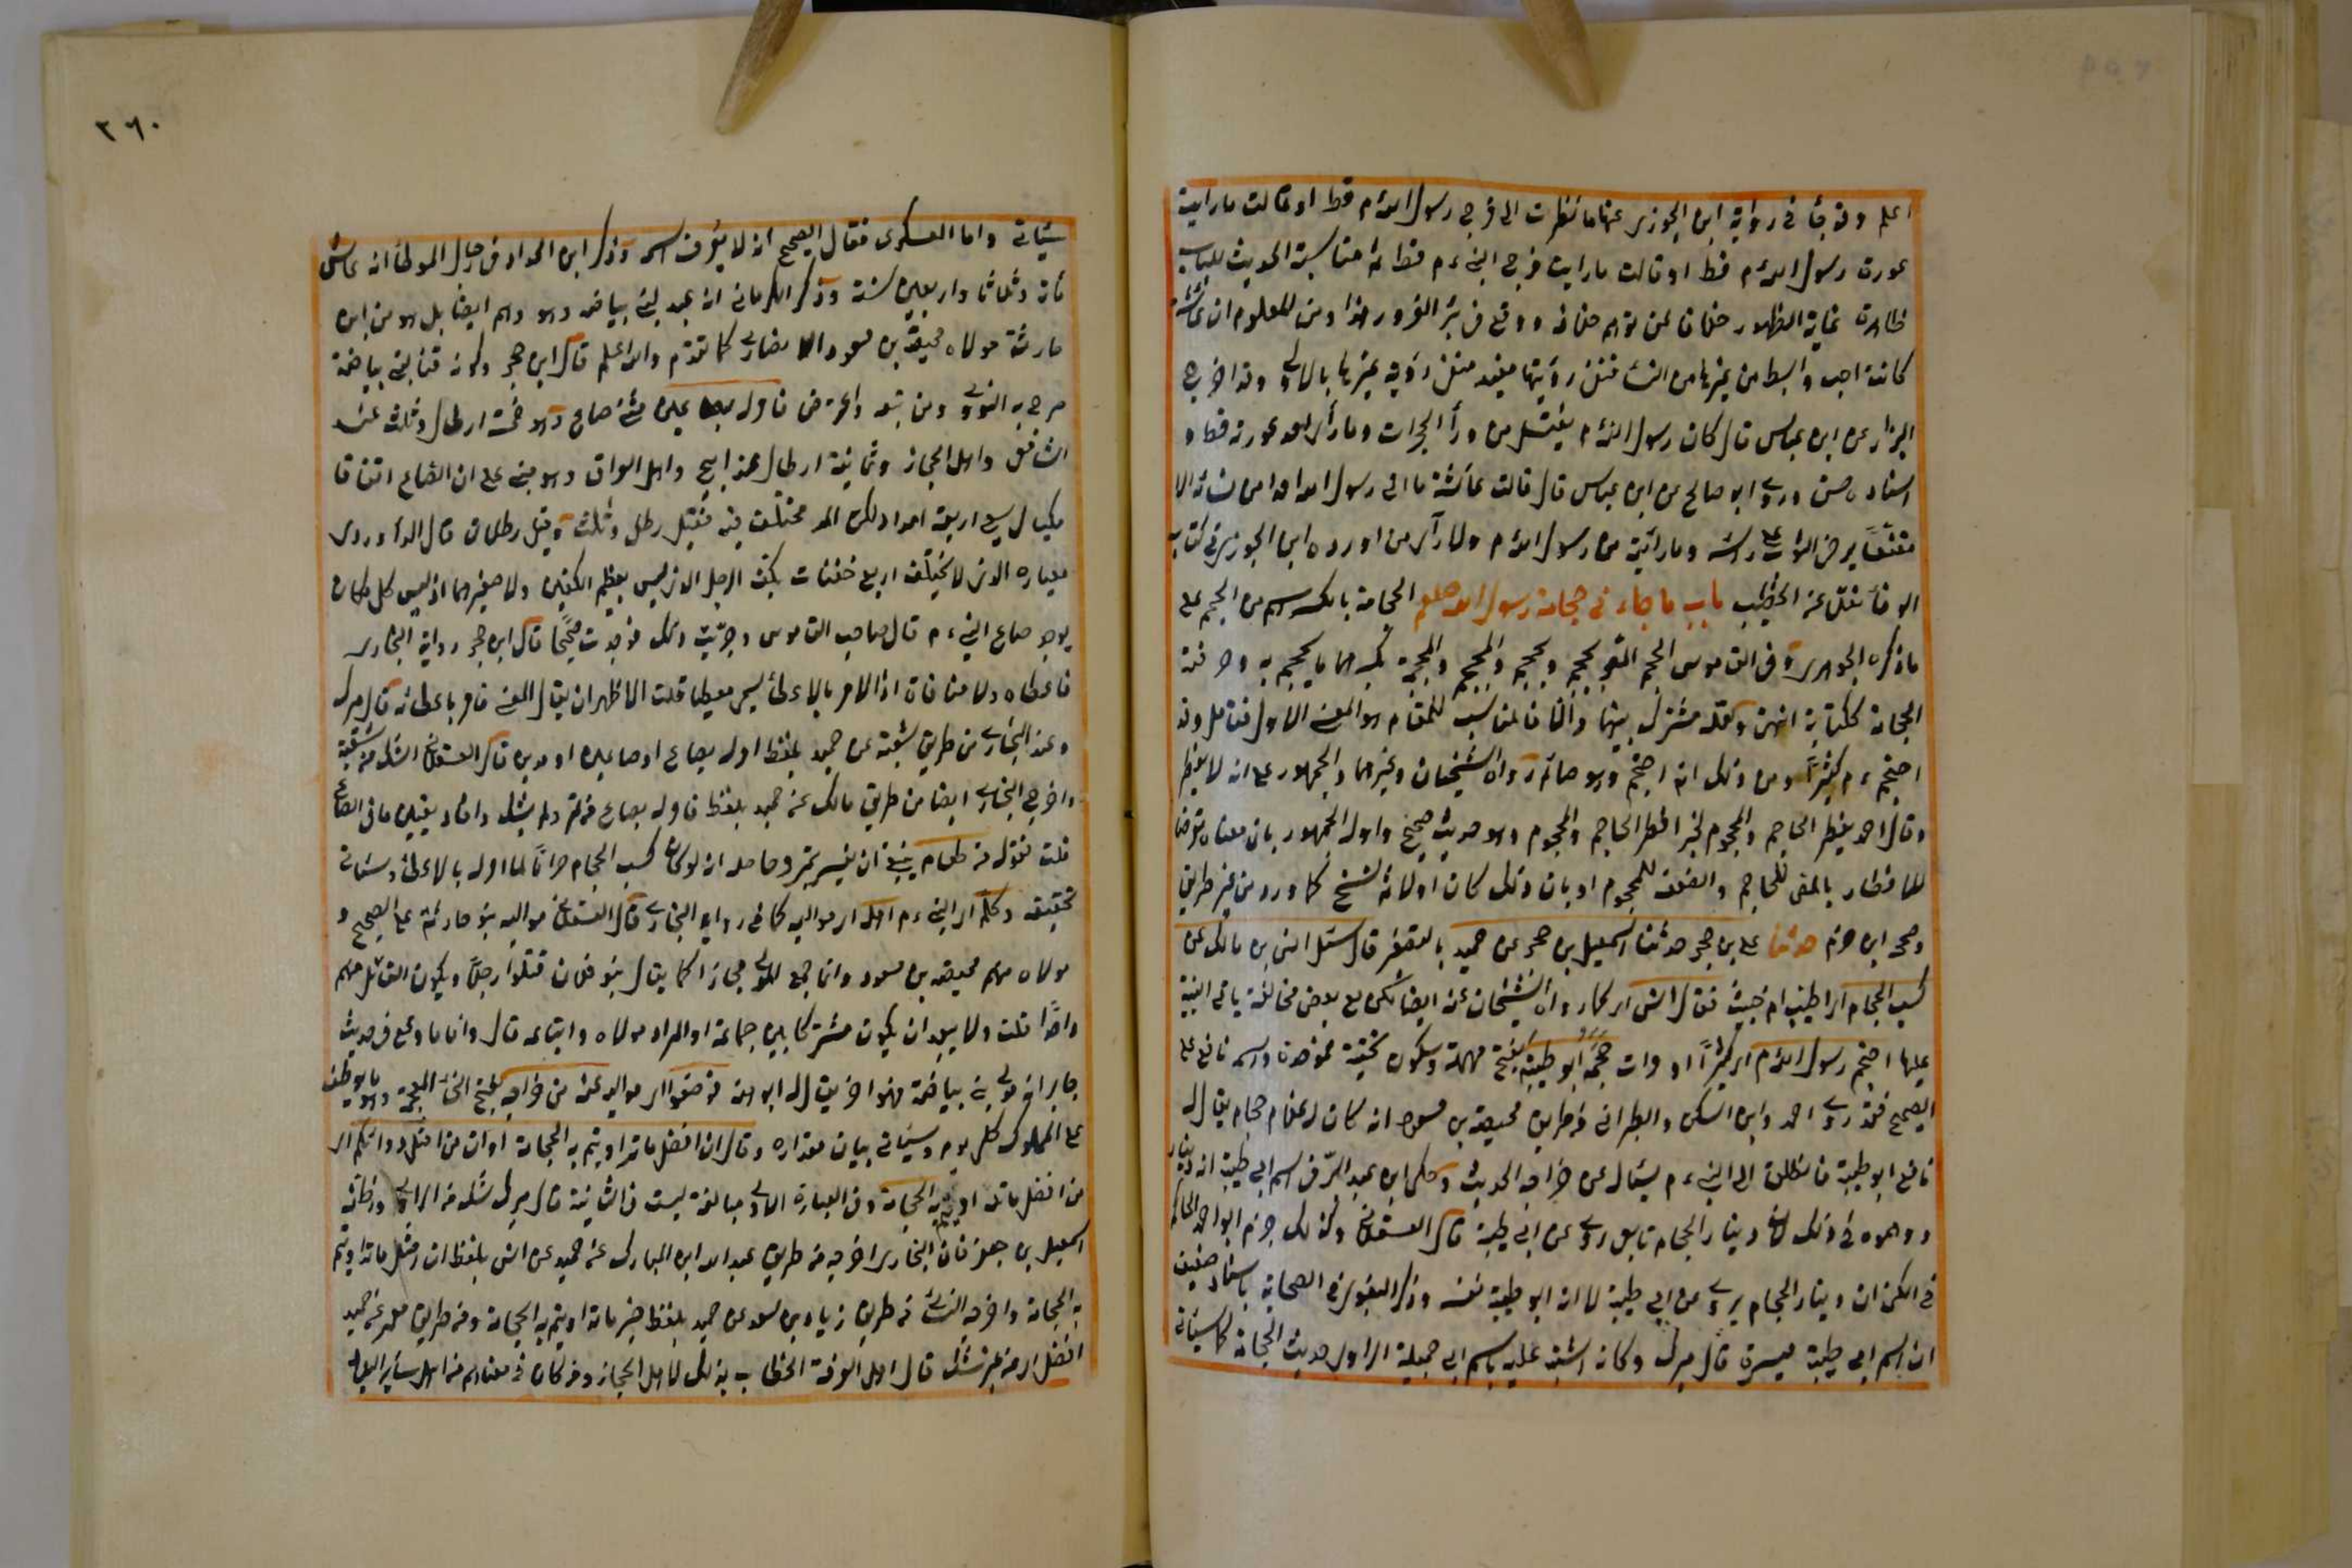 اعلم وقد جاء في رواية ابن الجوزي عنها ما نظرت الى فرج رسول الله م قط او قالت ما رايت
عورة رسول الله م قط او قالت ما رايت فرج النبي ء م قط ثم مناسبة الحديث للباب
ظاهرة غاية الظهور خلافا لمن توهم خلافه ووقع في بئر الغرور هذا ومن المعلوم ان عائشة
كانت احب وابسط من غيرها من النساء فنفي رؤيتها مفيد منفى رؤية غيرها بالاولى وقد اخرج
البزار عن ابن عباس قال كان رسول الله م يغتسل من ورآ الحجرات وما رأى احد عورته قط و
اسناده حسن وروى ابو صالح عن ابن عباس قال قالت عائشة ما اتى رسول الله احدا من نسائه الا
مقنعا يرخى الثوب على راسه وما رأيته من رسول الله م ولا رآى من اورده ابن الجوزي في كتاب
الوفا نقلا عن الخطيب باب ما جاء في حجامة رسول الله صلعم الحجامة بالكسر اسم من الحجم على
ما ذكره الجوهري وفي القاموس الحجم المص يحجم ويحجم والمحجم والمحجمة بكسرهما ما يحجم به وحرفته
الحجامة ككتابة انتهى ولعله مشترك بينهما والا فالمناسب للمقام هو المعنى الاول فتامل وقد
احتجم ء م كثيرا ومن ذلك انه احتجم وهو صائم رواه الشيخان وغيرهما والجمهور على انه لا يفطر
وقال احمد يفطر الحاجم والمحجوم لخبر افطر الحاجم والمحجوم وهو حديث صحيح واوله الجمهور بان معناه تعرضا
للافطار بالمص للحاجم والضعف للمحجوم او بان ذلك كان اولا ثم نسخ كما ورد من غير طريق
وصححه ابن حزم حدثنا على بن حجر حدثنا اسمعيل بن جعفر عن حميد بالتصغير قال سئل انس بن مالك عن
كسب الحجام اى اطيب ام خبيث فقال انس اى كما رواه الشيخان عنه ايضا لكن مع بعض مخالفة ياتي التنبيه
عليها احتجم رسول الله م اى كثيرا او مرات حجمه ابو طيبة بفتح مهملة وسكون تحتية فموحدة واسمه نافع على
الصحيح فقد روى احمد وابن السكن والطبراني من طريق محيصة بن مسعود انه كان له غلام حجام يقال له
نافع ابو طيبة فانطلق الى النبي ء م يسأل عن خراجه الحديث وحكى ابن عبد البر في اسم ابي طيبة انه دينار
ووهموه في ذلك لان دينار الحجام تابعي روى عن ابي طيبة قال العسقلاني وكذلك جزم ابو احمد الحاكم
في الكنى ان دينار الحجام يروى عن ابي طيبة لا انه ابو طيبة نفسه وذكر البغوي في الصحابة باسناد ضعيف
ان اسم ابي طيبة ميسرة قال ميرك وكانه اشتبه عليه باسم ابي جميلة الراوي حديث الحجامة كما سيأتي
٣٦٠
سيأتي واما العسكري فقال الصحيح انه لا يعرف اسمه وذكر ابن الحذاء في رجال الموطأ انه عاش
مائة وثلاثا واربعين سنة وذكر الكرماني انه عبد لبني بياضه وهو وهم ايضا بل هو من بني
حارثة مولاه محيصة بن مسعود الانصاري كما تقدم والله اعلم قال ابن حجر وكونه قنا لبني بياضة
صرح به النووي ومن تبعه واعترض فامر له بصاعين مثنى صاع وهو خمسة ارطال وثلث عند
الشافعي واهل الحجاز وثمانية ارطال عند ابي ح واهل العراق وهو مبنى على ان الصاع اتفاقا
مكيال يسع اربعة امداد لكن المد مختلف فيه فقيل رطل وثلث وقيل رطلان قال الداوودي
معياره الذي لا يختلف اربع حفنات بكف الرجل الذي ليس بعظيم الكفين ولا صغيرهما اذ ليس كل مكان
يوجد صاع النبي ء م قال صاحب القاموس وجربت ذلك فوجدت صحيحا قال ابن حجر رواية البخاري
فاعطاه ولا منافاة اذ الامر بالاعطاء يسمى معطيا قلت الاظهر ان يقال المعنى فامر باعطائه قال ميرك
وعند البخاري من طريق شعبة عن حميد بلفظ امر له بصاع او صاعين او مدين قال العسقلاني الشك من شعبة
واخرج البخاري ايضا من طريق مالك عن حميد بلفظ فامر له بصاع من تمر ولم يشك وافاد تعيين ما في الصاع
قلت فقوله من طعام ينبغي ان يفسر بتمر وحاصله انه لو كان كسب الحجام حراما لما امر له بالاعطاء وسيأتى
تحقيقه وكلم اى النبي ء م اهله اى مواليه كما في رواية البخاري قال العسقلاني مواليه بنو حارثة على الصحيح و
مولاه منهم محيصه بن مسعود وانما جمع الموالي مجازا كما يقال بنو فلان قتلوا رجلا ويكون القاتل منهم
واحدا قلت ولا يبعد ان يكون مشتركا بين جماعة او المراد مولاه واتباعه قال واما ما وقع في حديث
جابر انه مولى بنى بياضة فهو اخر يقال له ابو هند فوضعوا اى مواليه عنه من خراجه بفتح الخاء المعجمة وهو ما يوظف
على المملوك كل يوم وسيأتى بيان مقداره وقال ان افضل ما تداويتم به الحجامة او ان من امثل دوائكم اى
من افضل ما تداويتم به الحجامة وفي العبارة الاولى مبالغة ليست في الثانية قال ميرك شك من الراوي وظنه
اسمعيل بن جعفر فان البخاري اخرجه من طريق عبد الله ابن المبارك عن حميد عن انس بلفظ ان امثل ما تداويتم
به الحجامة واخرجه النسائى من طريق زياد بن سعد عن حميد بلفظ خير ما تداويتم به الحجامة ومن طريق معمر عن حميد
افضل اى من غير شك قال اهل المعرفة الخطاب بذلك لاهل الحجاز ومن كان في معناهم من اهل سائر البلاد